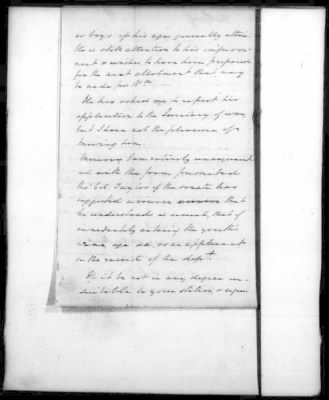 as boys of his age generally attain
He is still attentive to his improve-
ment & wishes to have been prepared
for the next allotment that may
be made for W. Pt.
He has asked me to expect his
application to the Secretary of war,
but I have not the pleasure of
knowing him.
Moreover I am entirely unacquaint-
ed with the form prescribed
tho' Col. Taylor of the senate has
suggested a course that
he understands is usual, that of
immediately entering the youth's
name age &c, as an applicant
in the records of the dept.
If it be not in any degree un-
suitable to your station, &